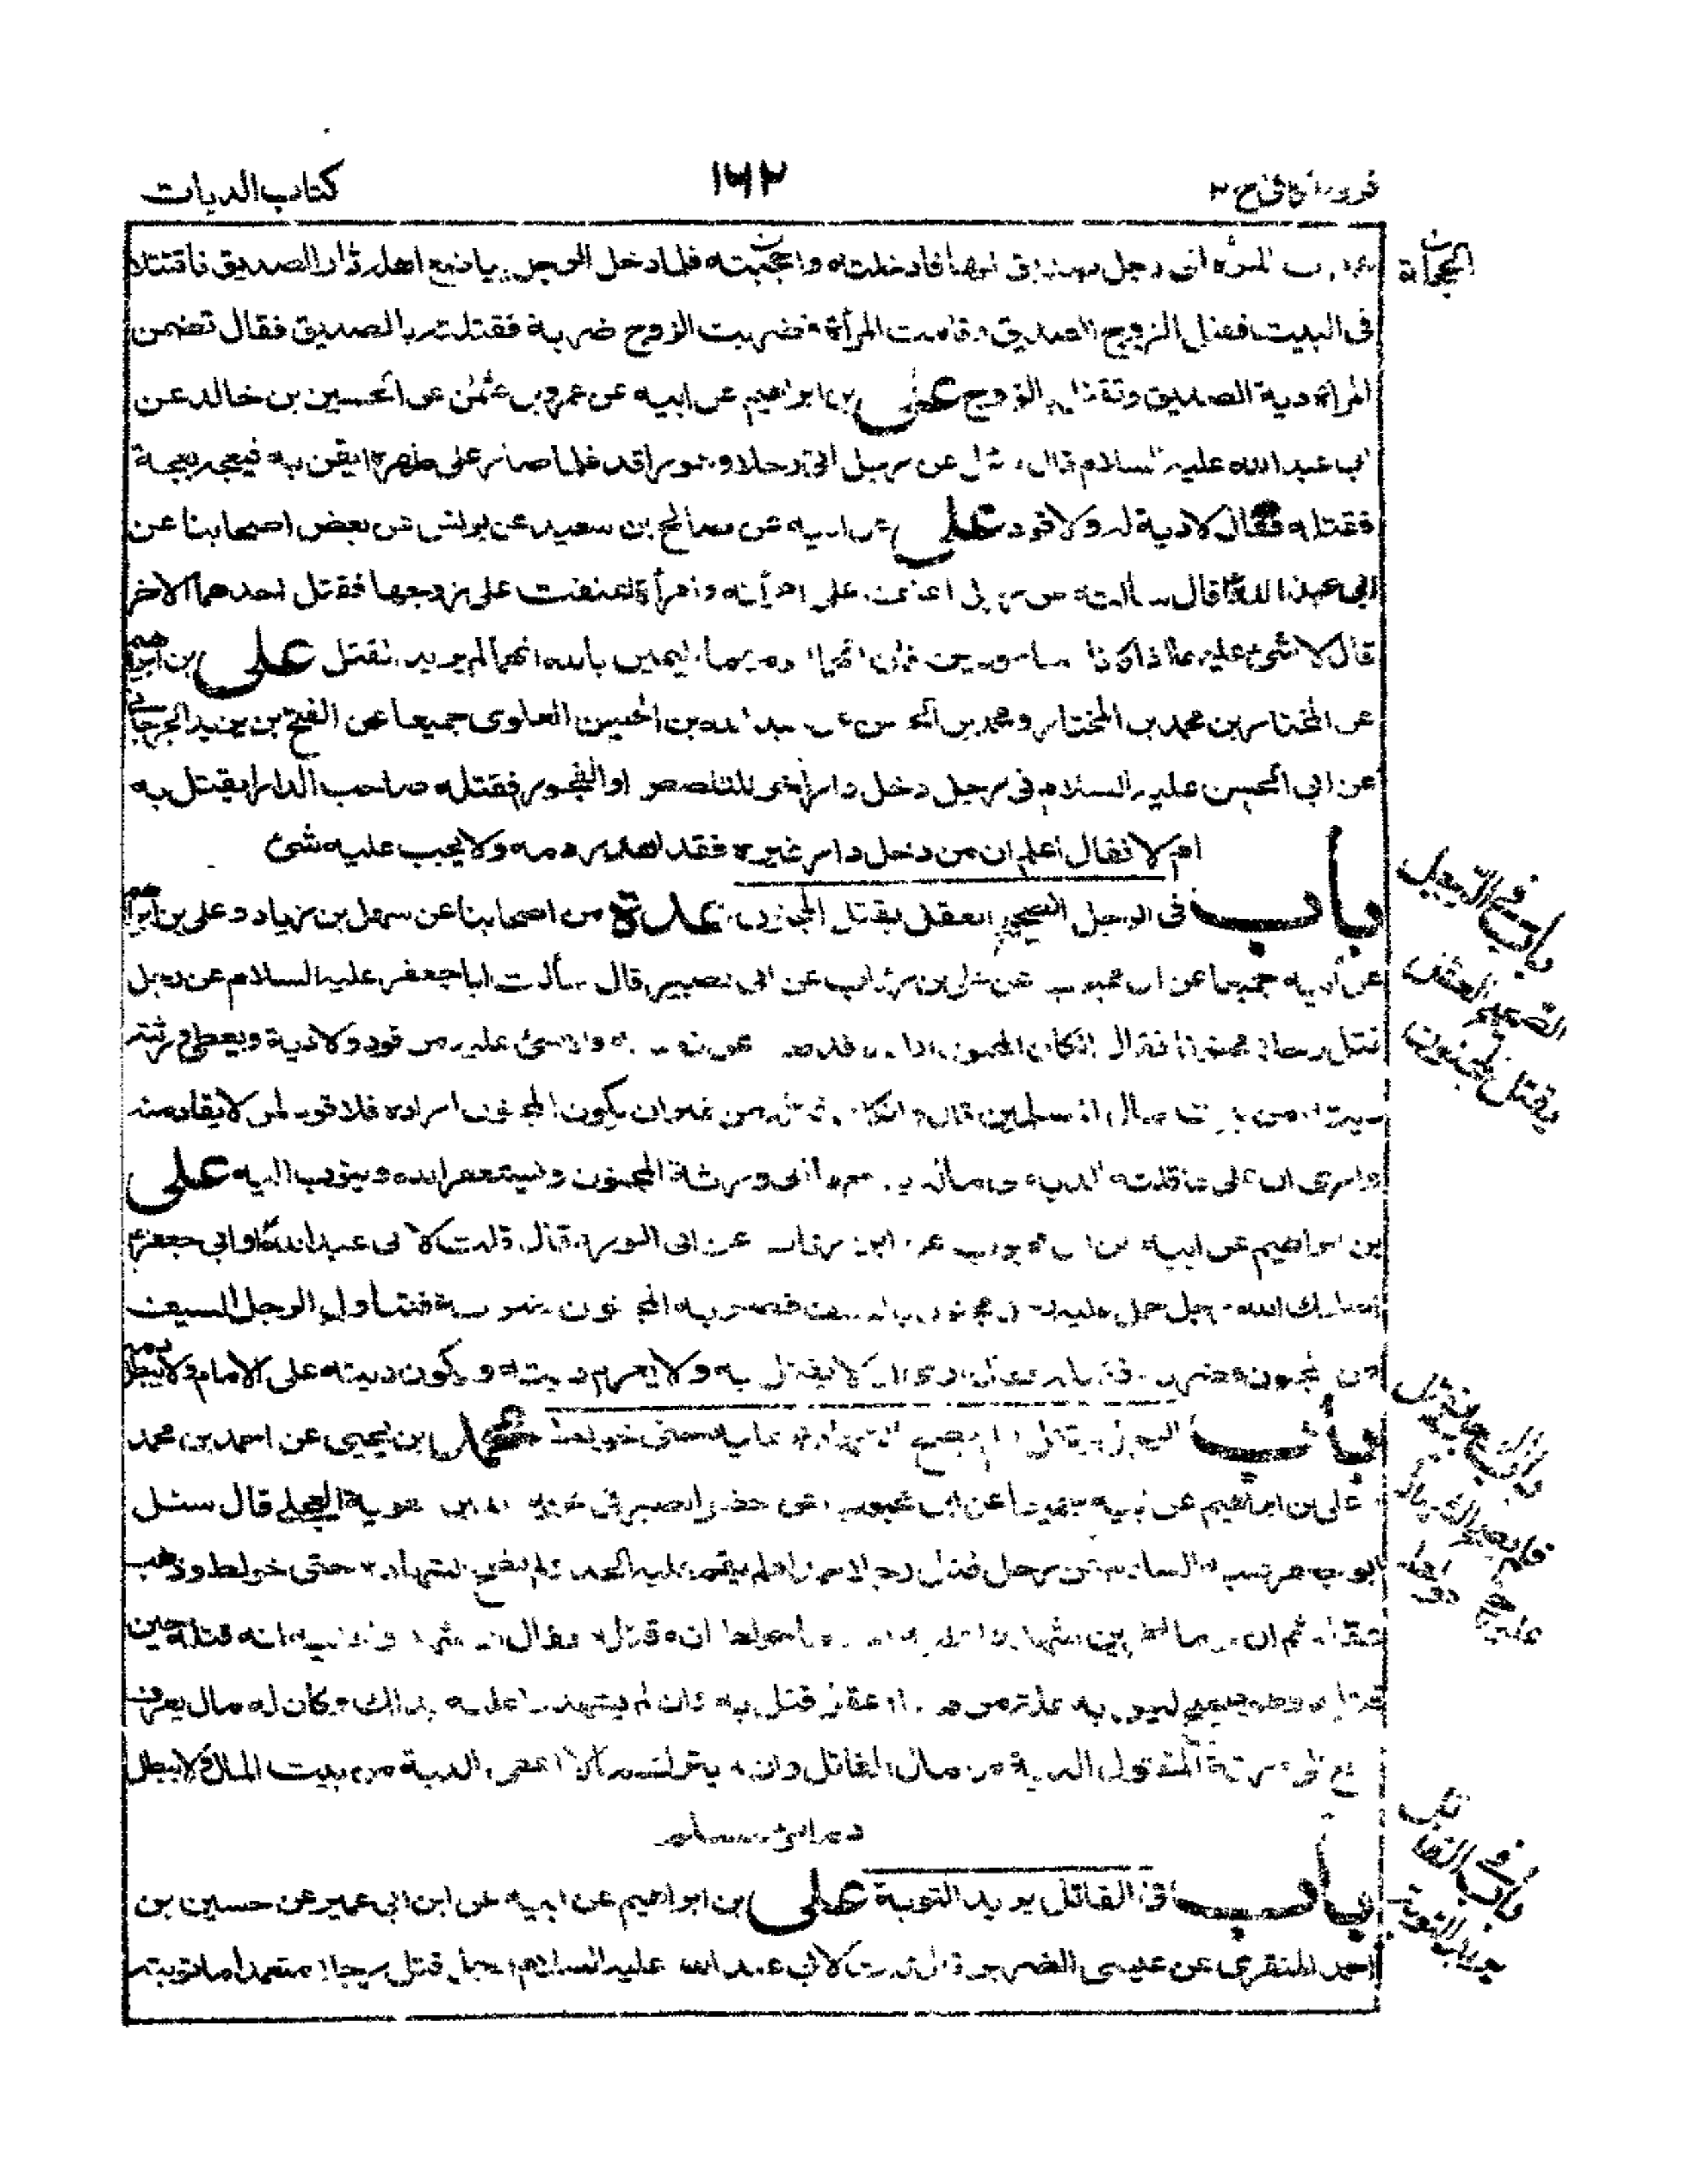 كتاب الديات
١٦٢
الحجلة
المرأة الى رجل صديق لها فادخلته فلما دخل الرجل يباضع اهله ثار الصديق فاقتتلا
فى البيت فقتل الزوج الصديق وقامت المرأة فضربت الزوج ضربة فقتلته بالصديق فقال تضمن
المرأة دية الصديق وتقتل بالزوج على بن ابراهيم عن ابيه عن عمرو بن عثمن عن الحسين بن خالد عن
ابى عبد الله عليه السلام قال سئل عن رجل اتى رجلا وهو راقد فلما صار على ظهره ايقن به فبعجه بعجة
فقتله فقال لا دية له ولا قود على عن ابيه عن صالح بن سعيد عن يونس عن بعض اصحابنا عن
ابى عبد الله ع قال سألته عن رجل اعنف على امرأته وامرأة اعنفت على زوجها فقتل احدهما الاخر
قال لا شئ عليهما اذا كانا مأمونين فان اتهما اليمين بالله انهما لم يريدا القتل على بن ابرهيم
عن المختار بن محمد بن المختار ومحمد بن الحسن عن عبد الله بن الحسين العلوى جميعا عن الفتح بن يزيد الجرجانى
عن ابى الحسن عليه السلام فى رجل دخل دار اخر للتلصص او الفجور فقتله صاحب الدار ايقتل به
ام لا فقال اعلم ان من دخل دار غيره فقد اهدر دمه ولا يجب عليه شئ
باب فى الرجل الصحيح العقل يقتل المجنون عدة من اصحابنا عن سهل بن زياد وعلى بن ابرهيم
عن ابيه جميعا عن ابن محبوب عن على بن رئاب عن ابى بصير قال سألت ابا جعفر عليه السلام عن رجل
قتل رجلا مجنونا فقال ان كان المجنون اراده فدفعه عن نفسه فلا شئ عليه من قود ولا دية ويعطى ورثته
ديته من بيت مال المسلمين قال وان كان قتله من غير ان يكون المجنون اراده فلا قود لمن لا يقاد منه
وارى ان على عاقلته الدية من ماله يدفعها الى ورثة المجنون ويستغفر الله ويتوب اليه على
بن ابراهيم عن ابيه عن ابن محبوب عن ابن رئاب عن ابى الورد قال قلت لابى عبد الله ع او ابى جعفر ع
اصلحك الله رجل حمل عليه رجل مجنون بالسيف فضربه المجنون ضربة فتناول الرجل السيف
من المجنون فضربه فقتله فقال ارى ان لا يقتل به ولا يغرم ديته وتكون ديته على الامام ولا يبطل دمه
باب الرجل يقتل فلم يصح الشهادة عليه حتى خولط محمد بن يحيى عن احمد بن محمد
على بن ابراهيم عن ابيه جميعا عن ابن محبوب عن خضر الصيرفى عن بريد بن معوية العجلى قال سئل
ابو جعفر عليه السلام عن رجل قتل رجلا عمدا فلم يقم عليه الحد ولم تصح الشهادة حتى خولط وذهب
عقله ثم ان قوما اخرين شهدوا عليه بعد ما خولط انه قتله فقال ان شهدوا عليه انه قتله حين
قتله وهو صحيح ليس به علة من فساد عقل قتل به وان لم يشهدوا عليه بذلك وكان له مال يعرف
دفع الى ورثة المقتول الدية من مال القاتل وان لم يترك مالا اعطى الدية من بيت المال ولا يبطل
دم امرئ مسلم
باب فى القاتل يريد التوبة على بن ابراهيم عن ابيه عن ابن ابى عمير عن حسين بن
احمد المنقرى عن عيسى الضرير قال قلت لابى عبد الله عليه السلام رجل قتل رجلا متعمدا ما توبته
باب فى الرجل
الصحيح العقل
يقتل المجنون
باب فى القاتل
يريد التوبة